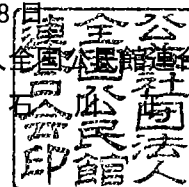 8日
人全国公民館連合
石
公益社団法人
全国公民館
連合会印